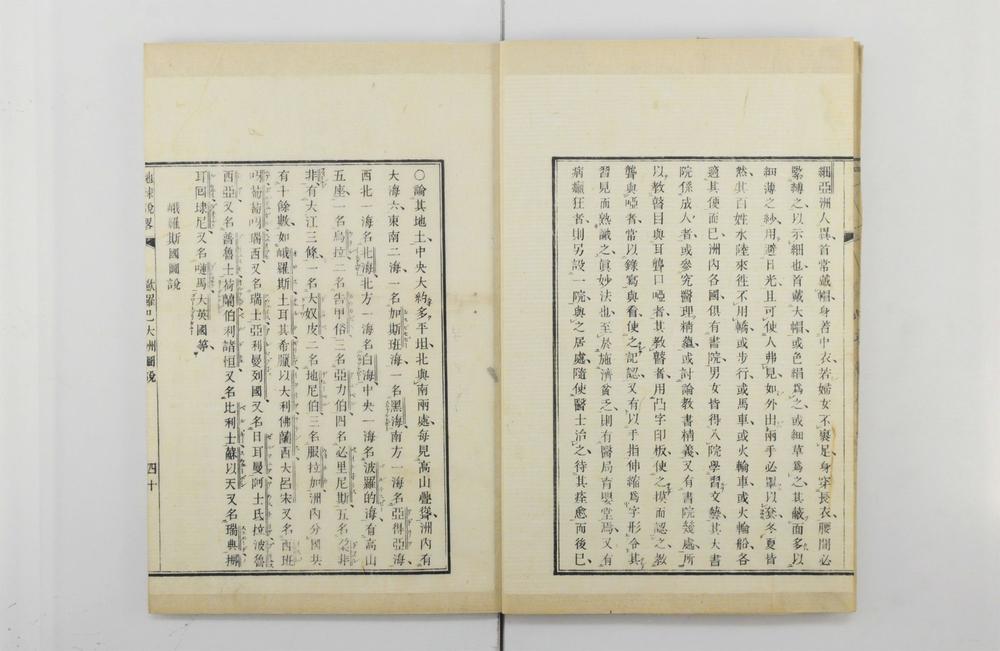 細亞洲人異、首常戴帽、身著中衣、若婦女不裹足、身穿長衣、腰間必
緊縛之、以示細也、首戴大帽、或色絹爲之、或細草爲之、其蔽面多以
細薄之紗、用避日光、且可使人弗見、如外出兩手必罩以套、冬夏皆
然、其百姓水陸來徃、不用轎、或步行、或馬車、或火輪車、或火輪船、各
適其便而已、洲內各國、俱有書院、男女皆得入院學習文藝、其大書
院係成人者、或參究醫理精蘊、或討論教書精義、又有書院幾處、所
以教瞽目與耳聾口啞者、其教瞽者、用凸字印板、使之摸而認之、教
聾與啞者、常以錄寫與看、使之記認、又有以手指伸縮爲字形、令其
習見而熟識之、眞妙法也、至於施濟貧乏、則有醫局育嬰堂焉、又有
病癲狂者、則另設一院與之居處、隨使醫士治之、待其痊愈而後已、
〇論其地土、中央大約多平坦、北與南兩處、每見高山疊聳、洲內有
大海六、東南二海、一名加斯班海、一名黑海、南方一海、名亞得亞海
西北一海、名北海、北方一海、名白海、中央一海、名波羅的海、有高山
五座、一名烏拉、二名告甲俗、三名亞力伯、四名必里尼斯、五名
非、有大江三條、一名大奴皮、二名地尼伯、三名服拉加、洲內分國共
有十餘數、如峨羅斯、土耳其、希臘、以大利、佛蘭西、大呂宋又名西班
葡萄瑞西又名瑞士、亞利曼列國又名日耳曼、阿士氐拉、波魯
西亞又名普魯士、荷蘭、伯利諸恒又名比利士、蘇以天又名瑞典、挪
耳回、埭尼又名嗹馬、大英國、等、
峨羅斯國圖說
地球說畧 歐羅巴大洲圖說 四十